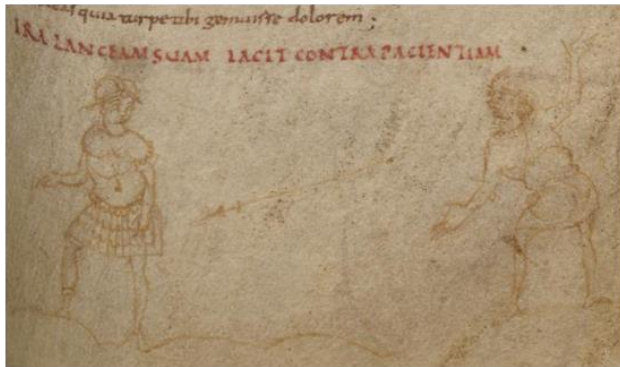 quia turpe tibi gemuisse dolorem;
IRA LANCEAM SUAM IACIT CONTRA PACIENTIAM